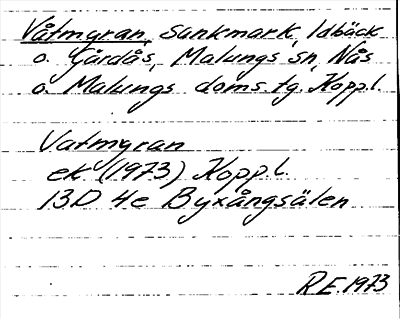 Våtmyran, Sankmark, Idbäck
o. Gårdås, Malungs sn, Nås
o. Malungs doms.tg. Koppl.
Vatmyran
ek (1973) Koppl.
13D 4e Byxångsälen
R E. 1973